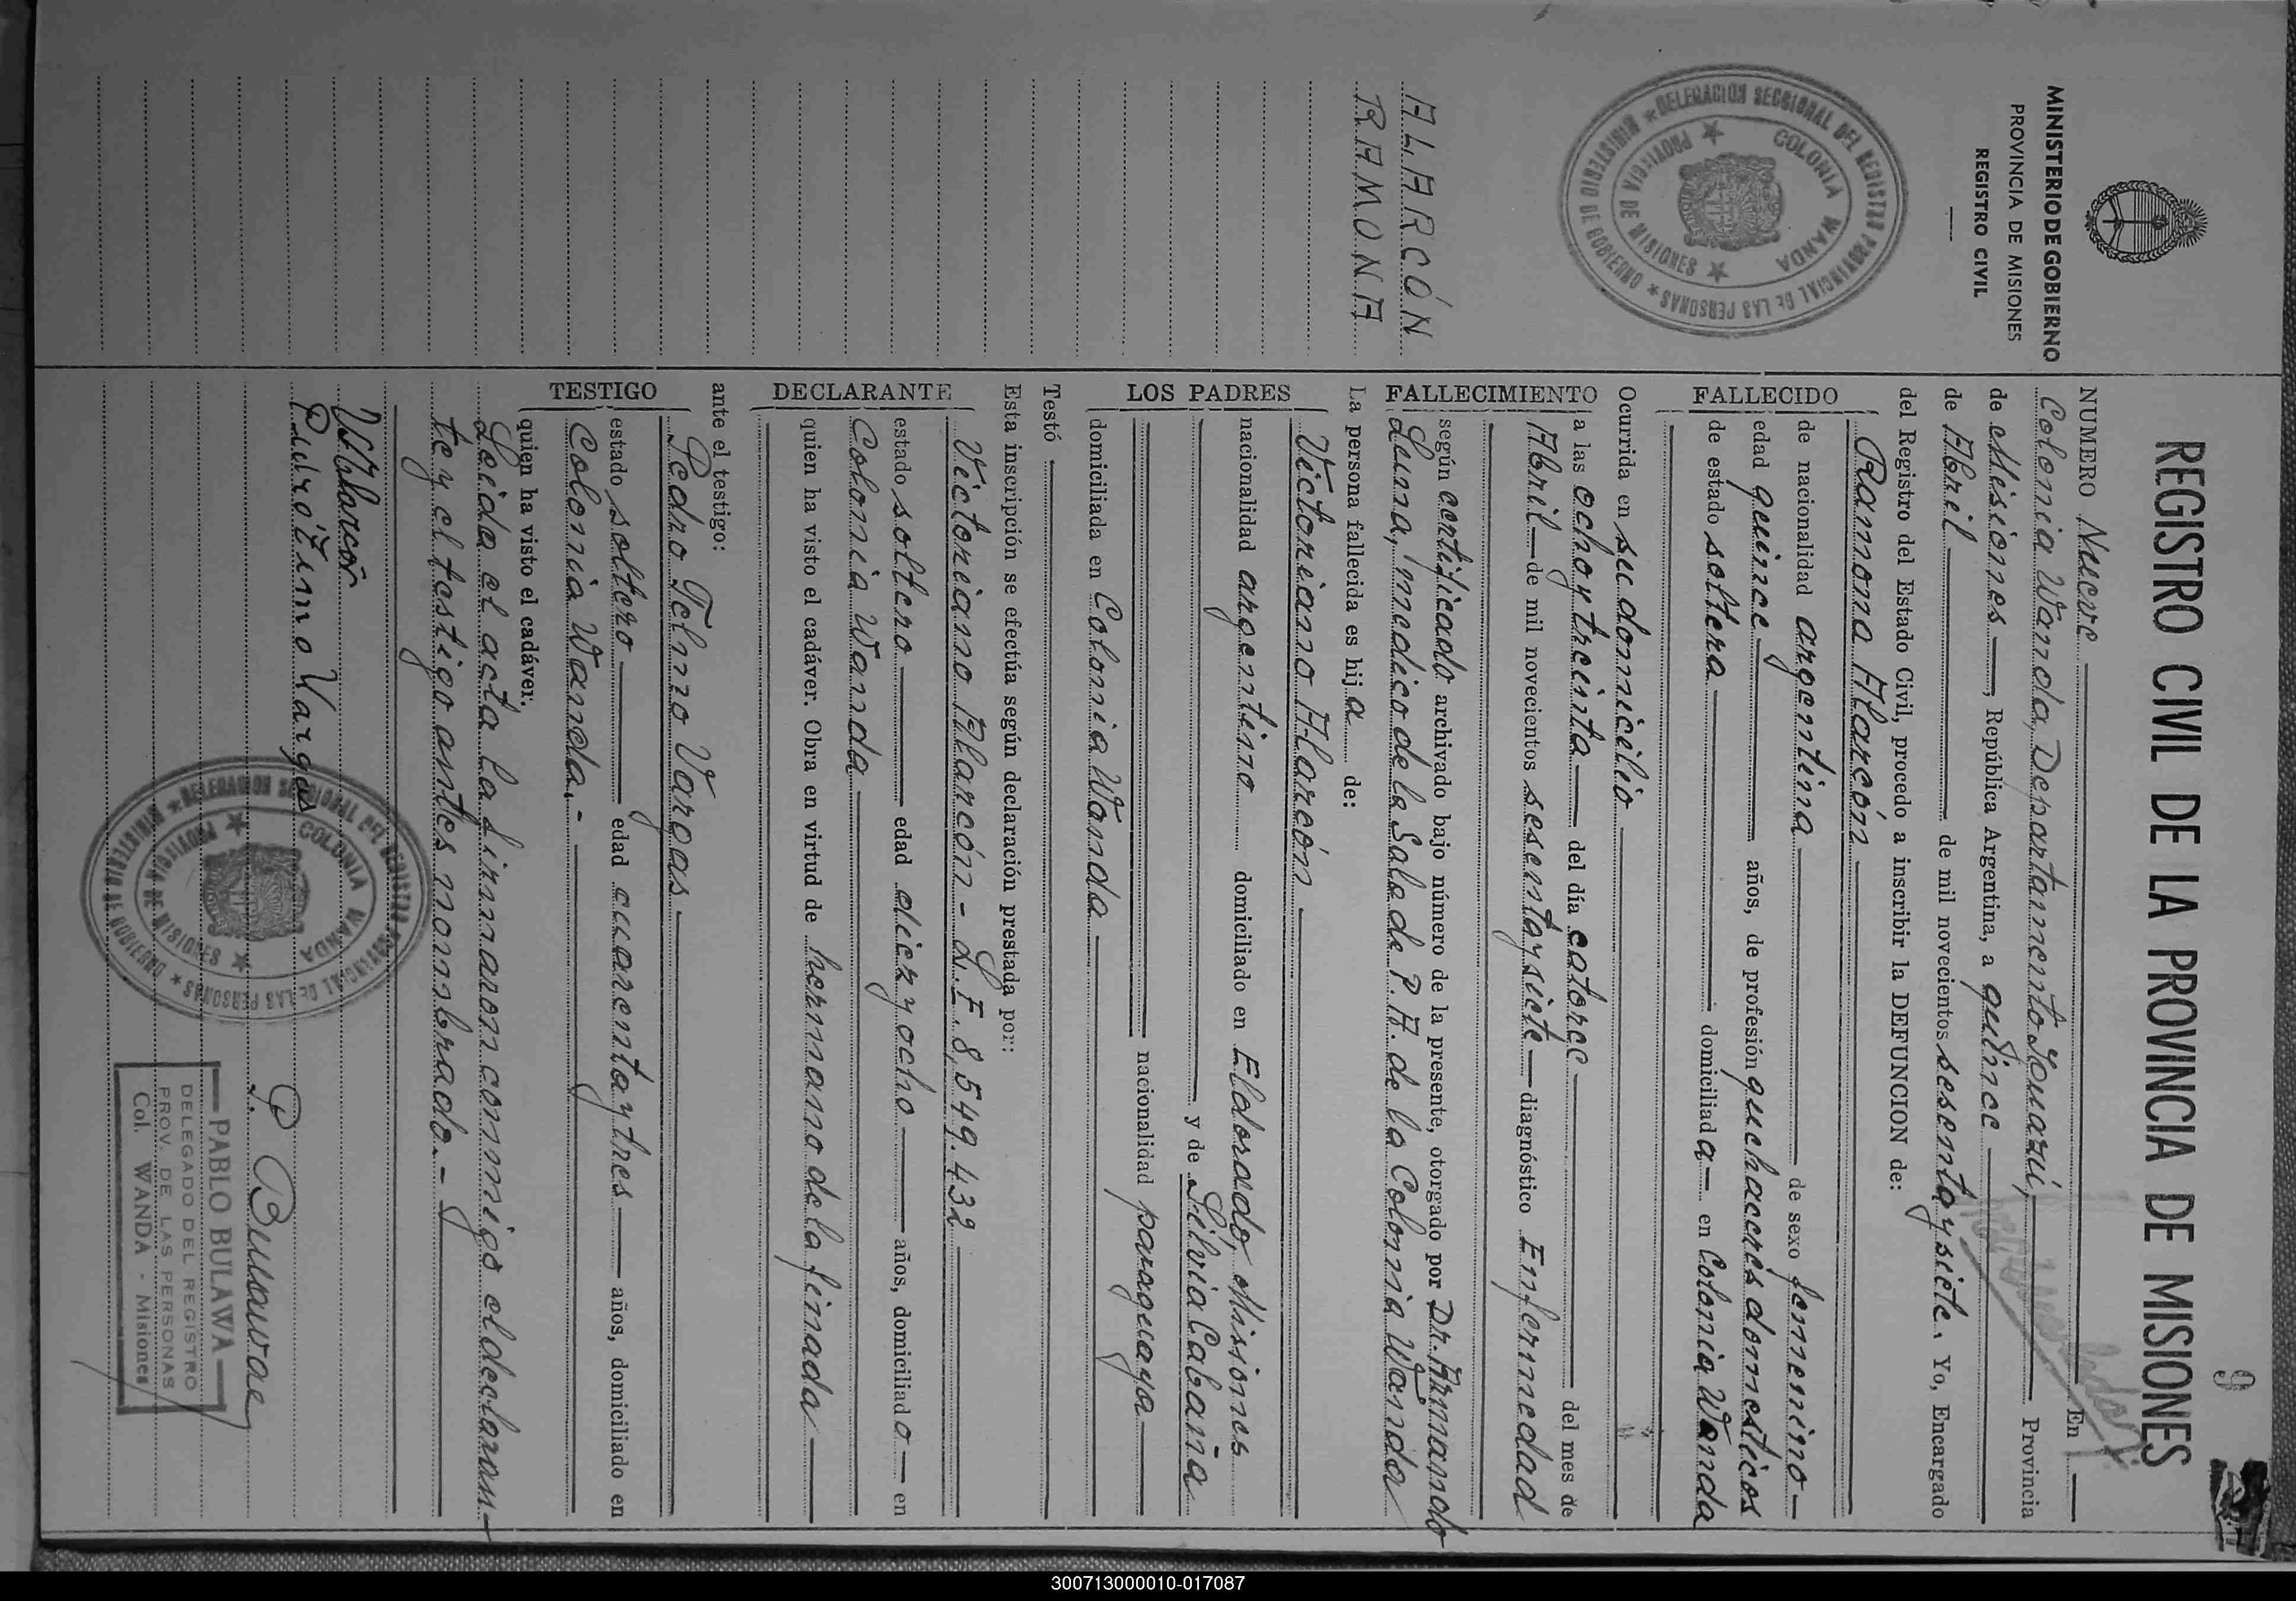 9
REGISTRO CIVIL DE LA PROVINCIA DE MISIONES
MINISTERIO DE GOBIERNO
PROVINCIA DE MISIONES
REGISTRO CIVIL
DELEGACIÓN SECCIONAL DEL REGISTRO PROVINCIAL DE LAS PERSONAS ★ MINISTERIO DE GOBIERNO ★
COLONIA WANDA ★ PROVINCIA DE MISIONES ★
ALARCÓN
RAMONA
NUMERO Nueve En
Colonia Wanda, Departamento Iguazú, Provincia
de Misiones, República Argentina, a quince
de Abril de mil novecientos sesenta y siete. Yo, Encargado
del Registro del Estado Civil, procedo a inscribir la DEFUNCION de:
FALLECIDO
Ramona Alarcón
de nacionalidad argentina de sexo femenino
edad quince años, de profesión quehaceres domésticos
de estado soltera domiciliada en Colonia Wanda
Ocurrida en su domicilio
FALLECIMIENTO
a las ocho y treinta del día catorce del mes de
Abril de mil novecientos sesenta y siete diagnóstico Enfermedad
según certificado archivado bajo número de la presente, otorgado por Dr. Armando
Luna, médico de la Sala de P.A. de la Colonia Wanda
La persona fallecida es hija de:
LOS PADRES
Victoriano Alarcón
nacionalidad argentino domiciliado en Eldorado, Misiones
y de Silvia Cabaña
nacionalidad paraguaya
domiciliada en Colonia Wanda
Testó
Esta inscripción se efectúa según declaración prestada por:
DECLARANTE
Victoriano Alarcón - L.E. 8,549.432
estado soltero edad diez y ocho años, domiciliado en
Colonia Wanda
quien ha visto el cadáver. Obra en virtud de hermano de la finada
ante el testigo:
TESTIGO
Pedro Telmo Vargas
estado soltero edad cuarenta y tres años, domiciliado en
Colonia Wanda.-
quien ha visto el cadáver.
Leida el acta la firmaron conmigo el declaran-
te y el testigo antes nombrado.-
VAlarcon
Pedro Telmo Vargas
P. Bulawa
DELEGACIÓN SECCIONAL DEL REGISTRO PROVINCIAL DE LAS PERSONAS ★ MINISTERIO DE GOBIERNO ★
COLONIA WANDA ★ PROVINCIA DE MISIONES ★
PABLO BULAWA
DELEGADO DEL REGISTRO
PROV. DE LAS PERSONAS
Col. WANDA - Misiones
300713000010-017087